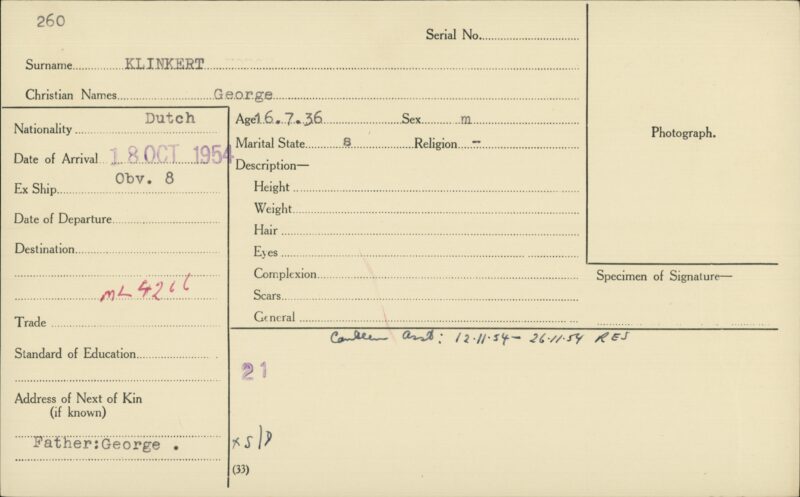 260
Serial No.
Surname KLINKERT
Christian Names George
Nationality Dutch
Age 16.7.36 Sex m
Marital State s Religion -
Date of Arrival 18 OCT 1954
Ex Ship Obv. 8
Date of Departure
Destination
ML 4266
Trade
Standard of Education
Address of Next of Kin
(if known)
Father:George .
Description—
Height
Weight
Hair
Eyes
Complexion
Scars
General
Photograph.
Specimen of Signature—
Canteen Asst: 12.11.54 - 26.11.54 RES
21
x S/D
(33)